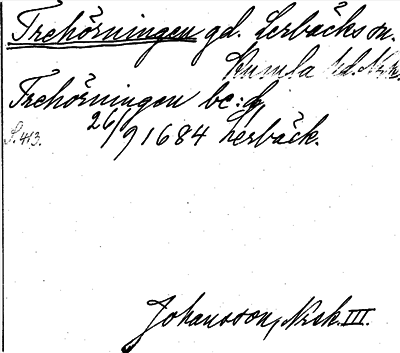 Trehörningen gd. Lerbäcks sn.
Kumla hd. Nrk.
Trehörningen be: d
S. 413. 26/9 1684 Lerbäck.
Johansson, Nrsk. III.